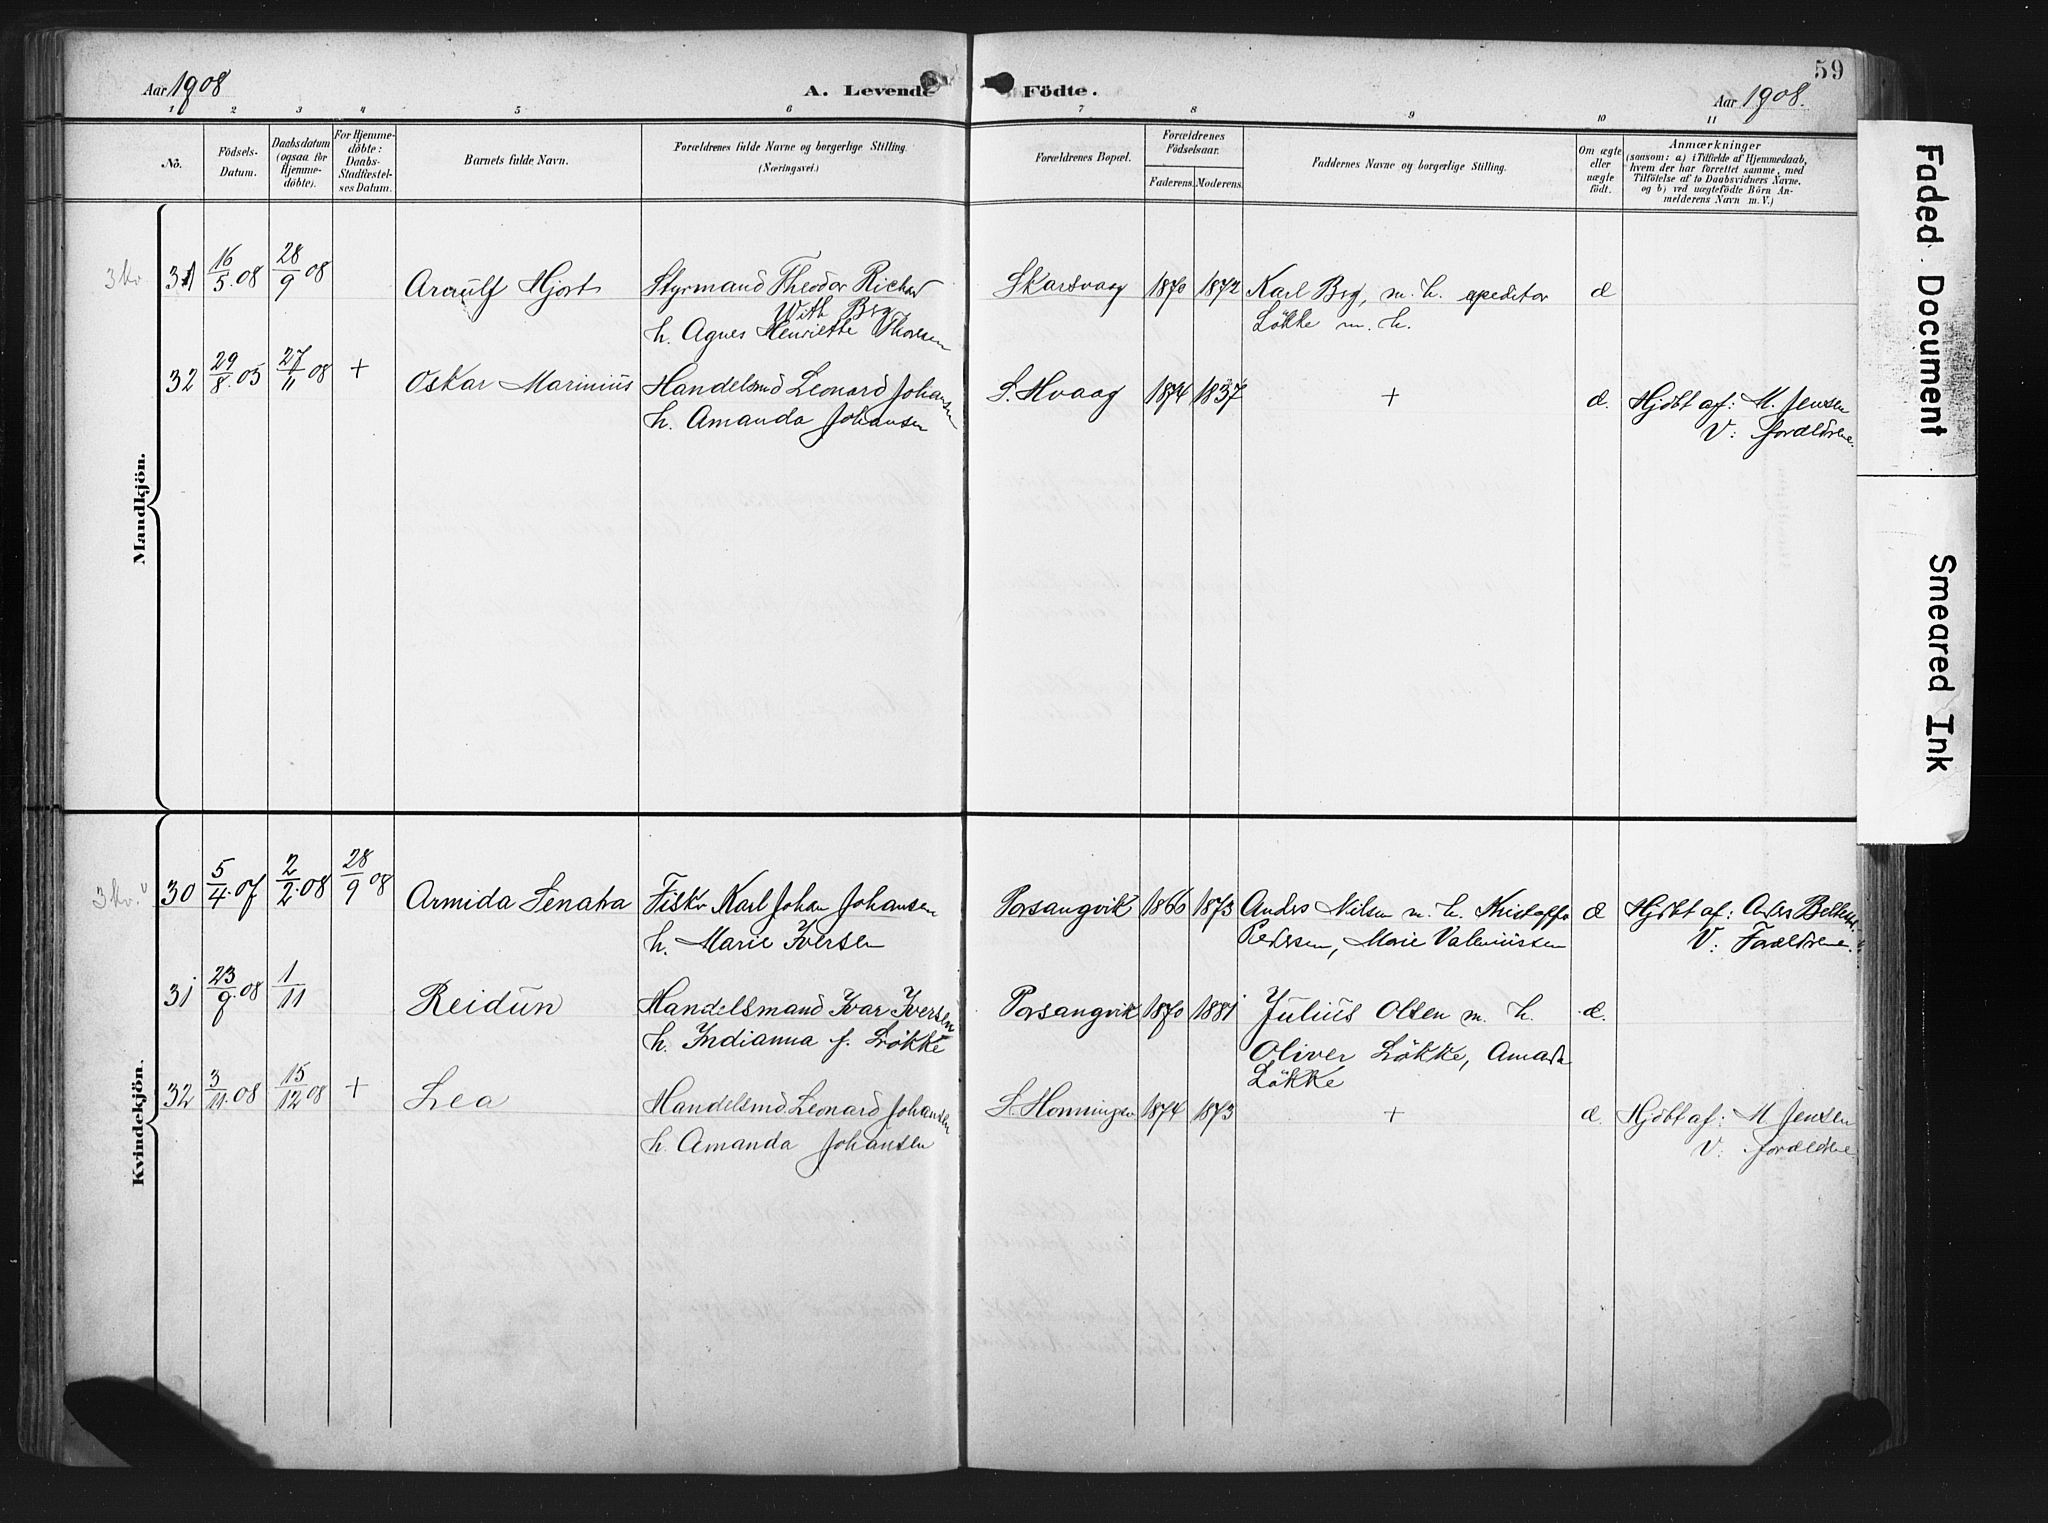 Aar 1908
A. Levende
Födte.
Aar 1908.
59
1 2 3 4 5 6 7 8 9 10 11
No.
Födsels-
Datum.
Daabsdatum
(ogsaa for
Hjemme-
döbte).
For Hjemme-
döbte:
Daabs-
Stadfæstel-
ses Datum.
Barnets fulde Navn.
Forældrenes fulde Navne og borgerlige Stilling.
(Næringsvei.)
Forældrenes Bopæl.
Forældrenes
Födselsaar.
Faderens. Moderens.
Faddernes Navne og borgerlige Stilling.
Om ægte
eller
uægte
födt.
Anmærkninger
(saasom: a) i Tilfælde af Hjemmedaab,
hvem der har forrettet samme, med
Tilföielse af to Daabsvidners Navne,
og b) ved uægtefödte Börn An-
melderens Navn m. V.)
Mandkjön.
3 kv
31 16/5.08 28/9 08 Arnulf Hjort Styrmand Theodor Richar Skarsvaag 1870 1872 Karl Brg, m. h. expeditor æ
With Brg,
Løkke m. h.
h. Agnes Henriette Thoresen
32 29/8.05 27/11 08 + Oskar Marinius Handelsmd Leonard Johansen S. Hvaag 1874 1837 + æ. Hjdbt af: M. Jensen
h. Amanda Johansen V: forældrene.
Kvindekjön.
3 kv. v
30 5/4.07 2/2.08 28/9 08 Armida Senatra Fiskr Karl Johan Johansen Porsangvik 1866 1873 Andrs Nilsen m. h. Kristoffr æ Hjdbt af: Andrs
h. Marie Iversen Pedersen, Marie Valeniussen V: Forældrene.
31 23/9.08 1/11 Reidun Handelsmand Ivar Iversen Porsangvik 1870 1881 Julius Olsen m. h. æ.
h. Indianna f. Løkke Oliver Løkke, Amanda
Løkke
32 3/11.08 15/12 08 + Lea Handelsmd. Leonard Johansen S. Honningsv 1874 1873 + æ. Hjdbt af: M Jensen
h. Amanda Johansen V: forældrene
Faded Document
Smeared Ink